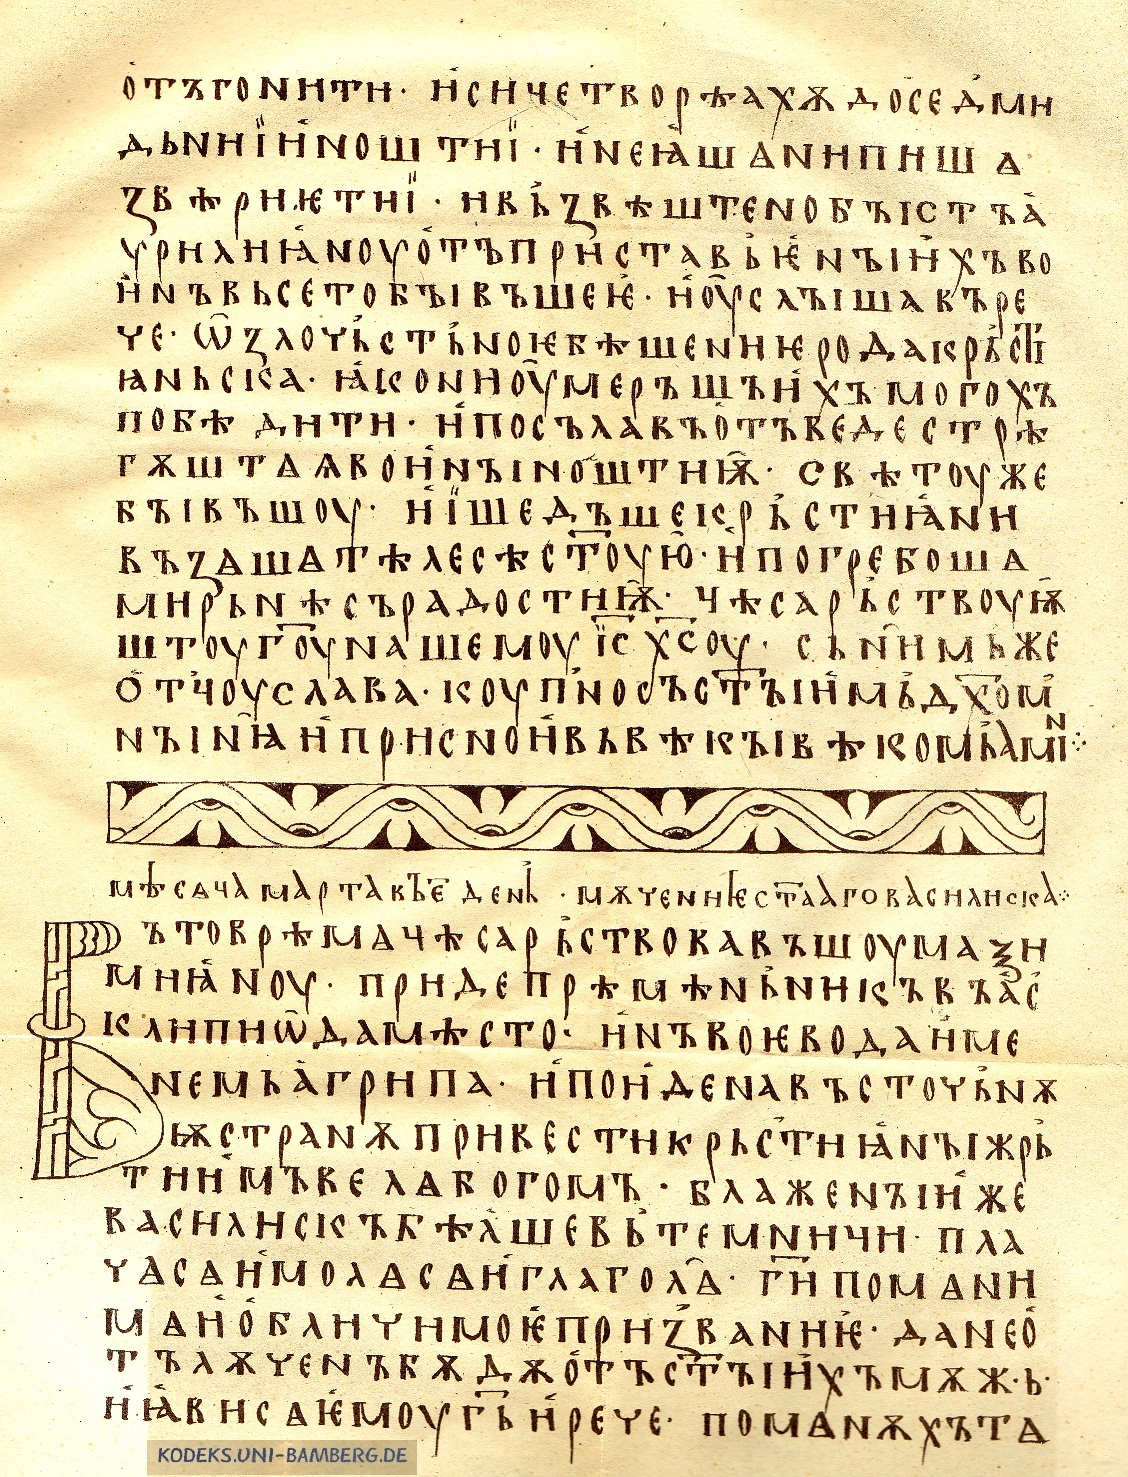 о҆тъгонити· и҆ си четворѣахѫ до се д҆ми
дьниї и҆ ношътиї · и҆ не ꙗ҆шѧ ни пишѧ
ꙁвѣриѥтиї · и въ҆ꙁвѣштено бъістъ а҆
ѵрилиꙗ҆ноу о҆тъ при҆ставь҆ѥ҆нъіи҆хъ во
и҆нъ вьсе то бъівъшеѥ҆· и҆ оу҆слъішавъ ре
че· ѡ҆ ꙁлоуь҆сть҆ноѥ бѣшениѥ рода крь҆сті
ꙗньска· ꙗ҆ко ни оу҆меръшъи҆хъ могохъ
побѣдити· и҆ посълавъ о҆тъведе стрѣ
гѫштѧѩ вои҆нъі ноштиѭ҆· свѣтоу же
бъівъшоу· и҆ їшедъше кр҆ьстиꙗ҆ни
въꙁѧшѧ тѣлесѣ стоую҆· и҆ погребошѧ
мирьнѣ съ радостиѭ҆· цѣсарь҆ствоуѭ҆
штоу гоу нашемоу їс хсоу· сь ни҆мь же
о҆тцоу слава· коупь҆но съ стъіи҆мь҆ дхо҆мь
нъінꙗ҆ и҆ присно и҆ вь вѣкъі вѣкомъ҆ ами҆н ⁘
мѣсѧца марта къе҆ день҆ · мѫчениѥ стааго василиска⁘
Въ то врѣмѧ цѣсарь҆ствовавъшоу маѯи
миꙗ҆ноу· приде прѣмѣнь҆никъ въ а҆с҆
клипиѡ҆да мѣсто· и҆нъ воѥвода и҆ме
немь а҆грипа· и҆ пои҆де на въсточь҆нѫ
ѭ странѫ привести крьс҆тиꙗ҆нъі жрь҆
ти и҆мъ велѧ богомъ · блаженъіи҆ же
василискъ бѣа҆ше вь҆ темници· пла
чѧ сѧ и҆ молѧ сѧ и҆ глаголѧ҆· ги҆ помѧни
мѧ и҆ о҆бличи моѥ҆ приꙁ҆ваниѥ҆· да не о҆
тълѫченъ бѫдѫ о҆тъ стъіи҆хъ мѫжь·
и҆ ꙗ҆ви сѧ ѥ҆моу гь҆ и҆ рече· помѧнѫхъ тѧ
KODEKS.UNI-BAMBERG.DE